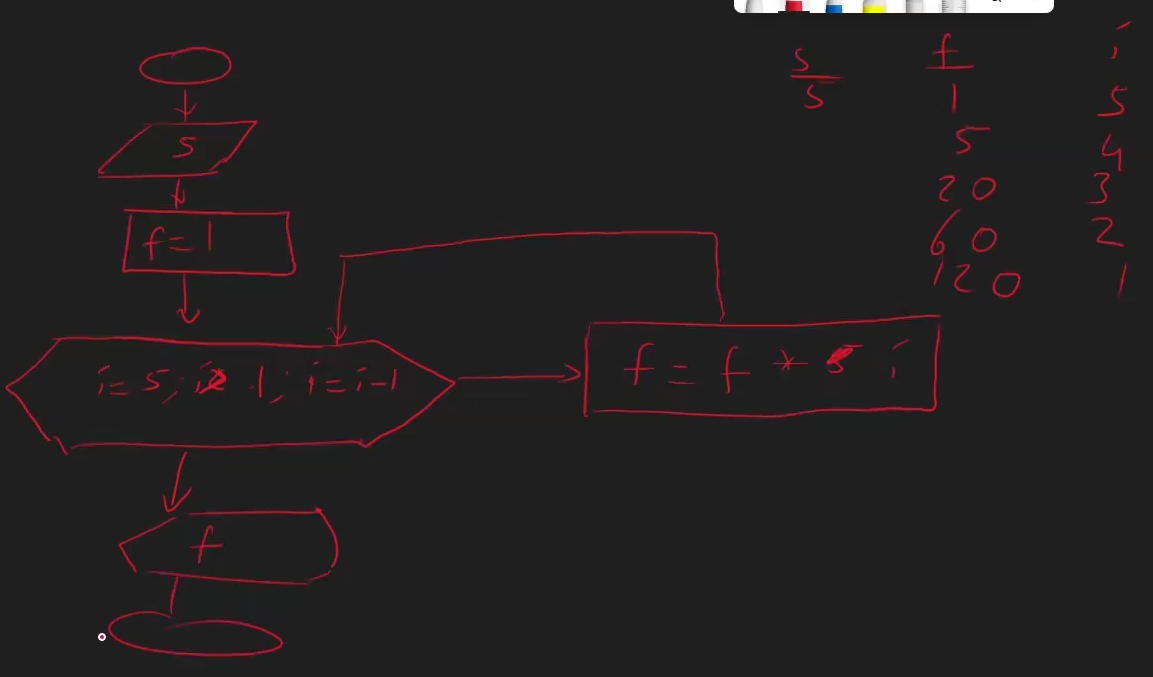 s
f = 1
i = 5; i 1; i = i-1
f = f * i
f
s f i
5 1 5
5 4
20 3
60 2
120 1